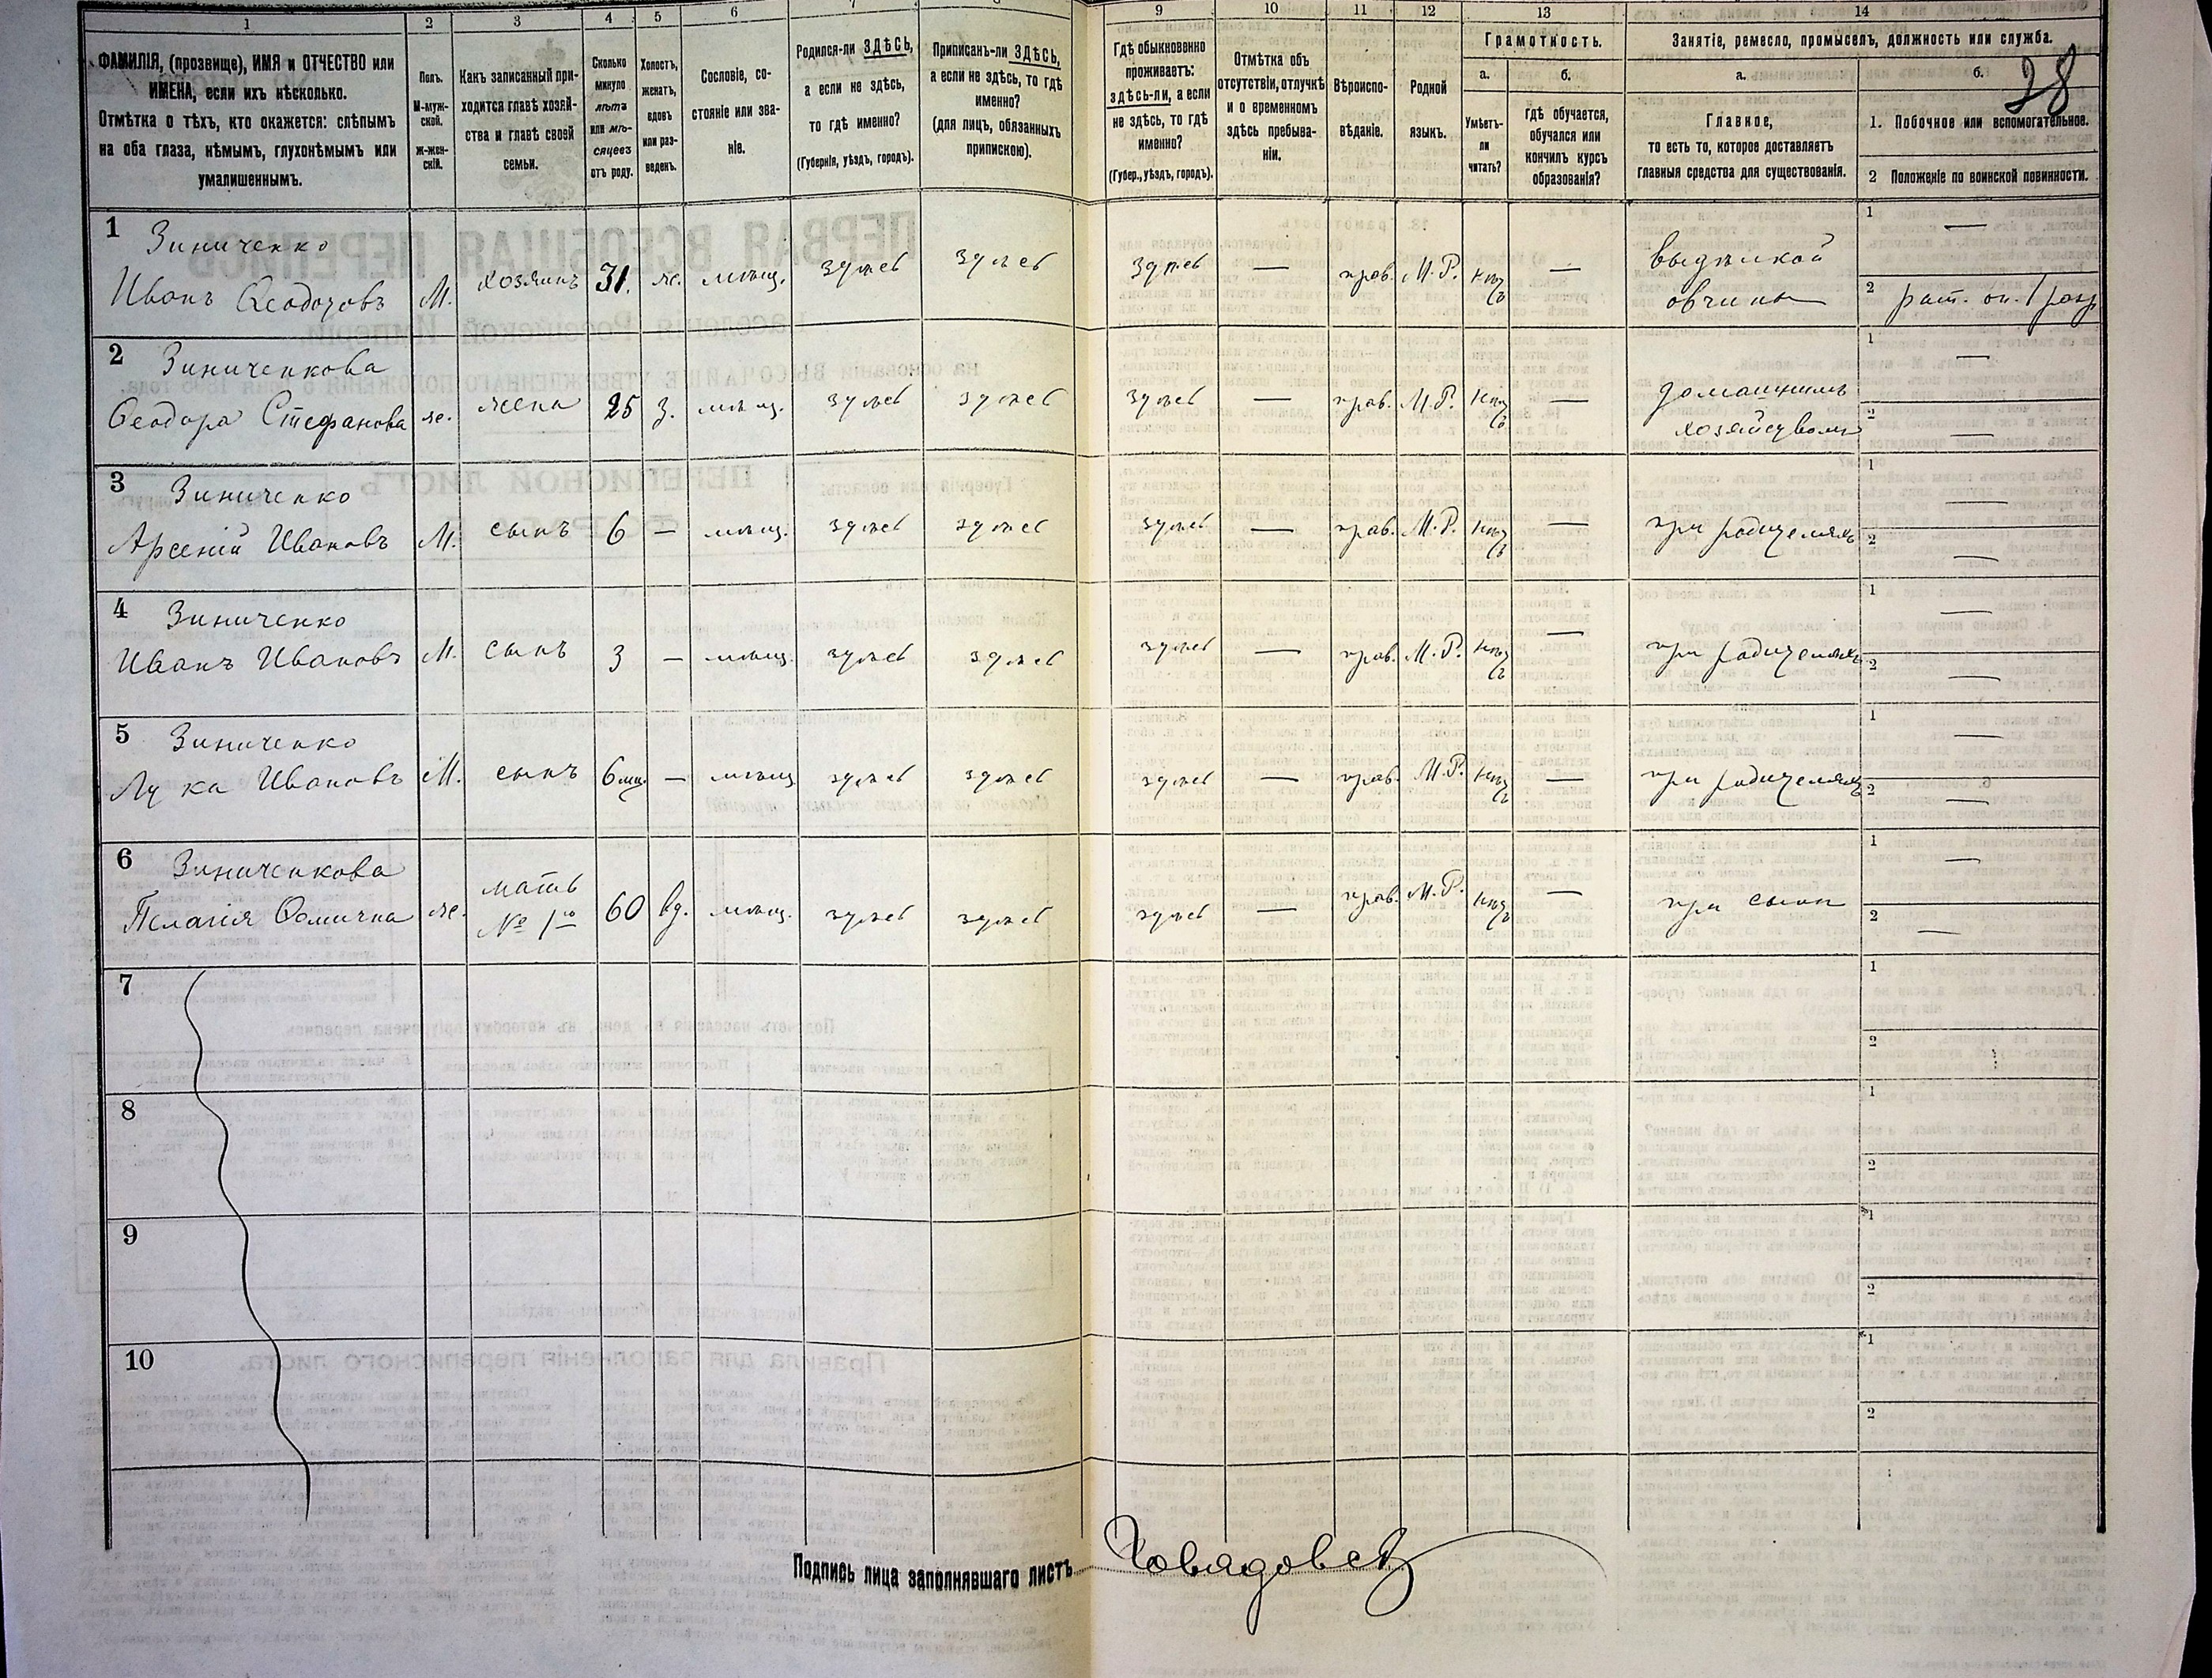 1 2 3 4 5 6 7 8 9 10 11 12 13 14
ФАМИЛІЯ, (прозвище), ИМЯ и ОТЧЕСТВО или
ИМЕНА, если ихъ нѣсколько.
Отмѣтка о тѣхъ, кто окажется: слѣпымъ
на оба глаза, нѣмымъ, глухонѣмымъ или
умалишеннымъ.
Полъ.
М-муж-
ской.
ж-жен-
скій.
Какъ записанный при-
ходится главѣ хозяй-
ства и главѣ своей
семьи.
Сколько
минуло
лѣтъ
или мѣ-
сяцевъ
отъ роду.
Холостъ,
женатъ,
вдовъ
или раз-
веденъ.
Сословіе, со-
стояніе или зва-
ніе.
Родился-ли ЗДѢСЬ,
а если не здѣсь,
то гдѣ именно?
(Губернія, уѣздъ, городъ).
Приписанъ-ли ЗДѢСЬ,
а если не здѣсь, то гдѣ
именно?
(для лицъ, обязанныхъ
припискою).
Гдѣ обыкновенно
проживаетъ:
здѣсь-ли, а если
не здѣсь, то гдѣ
именно?
(Губер., уѣздъ, городъ).
Отмѣтка объ
отсутствіи, отлучкѣ
и о временномъ
здѣсь пребыва-
ніи.
Вѣроиспо-
вѣданіе.
Родной
языкъ.
Грамотность.
а.
Умѣетъ-
ли
читать?
б.
Гдѣ обучается,
обучался или
кончилъ курсъ
образованія?
Занятіе, ремесло, промыселъ, должность или служба.
а.
Главное,
то есть то, которое доставляетъ
главныя средства для существованія.
б.
28
1. Побочное или вспомогательное.
2 Положеніе по воинской повинности.
1 Зиниченко
Иванъ Ѳеодоровъ М. хозяинъ 31. же. мѣщ. здѣсь здѣсь здѣсь — прав. М.Р. нѣтъ — выдѣлкой 1 —
овчины 2 рат. оп. 1 разр
2 Зиниченкова
Ѳеодора Стефанова же. жена 25 з. мѣщ. здѣсь здѣсь здѣсь — прав. М.Р. нѣтъ — домашнимъ 1 —
хозяйствомъ 2 —
3 Зиниченко
Арсеній Ивановъ М. сынъ 6 — мѣщ. здѣсь здѣсь здѣсь — прав. М.Р. нѣтъ — при родителяхъ 1 —
2 —
4 Зиниченко
Иванъ Ивановъ М. сынъ 3 — мѣщ. здѣсь здѣсь здѣсь — прав. М.Р. нѣтъ — при родителяхъ 1 —
2 —
5 Зиниченко
Лука Ивановъ М. сынъ 6 мц. — мѣщ здѣсь здѣсь здѣсь — прав. М.Р. нѣтъ — при родителяхъ 1 —
2 —
6 Зиниченкова
Пелагія Ѳомична же. мать 60 вд. мѣщ. здѣсь здѣсь здѣсь — прав. М.Р. нѣтъ — при сынѣ 1 —
№ 1го 2 —
7 1
2
8 1
2
9 1
2
10 1
2
Подпись лица заполнявшаго листъ